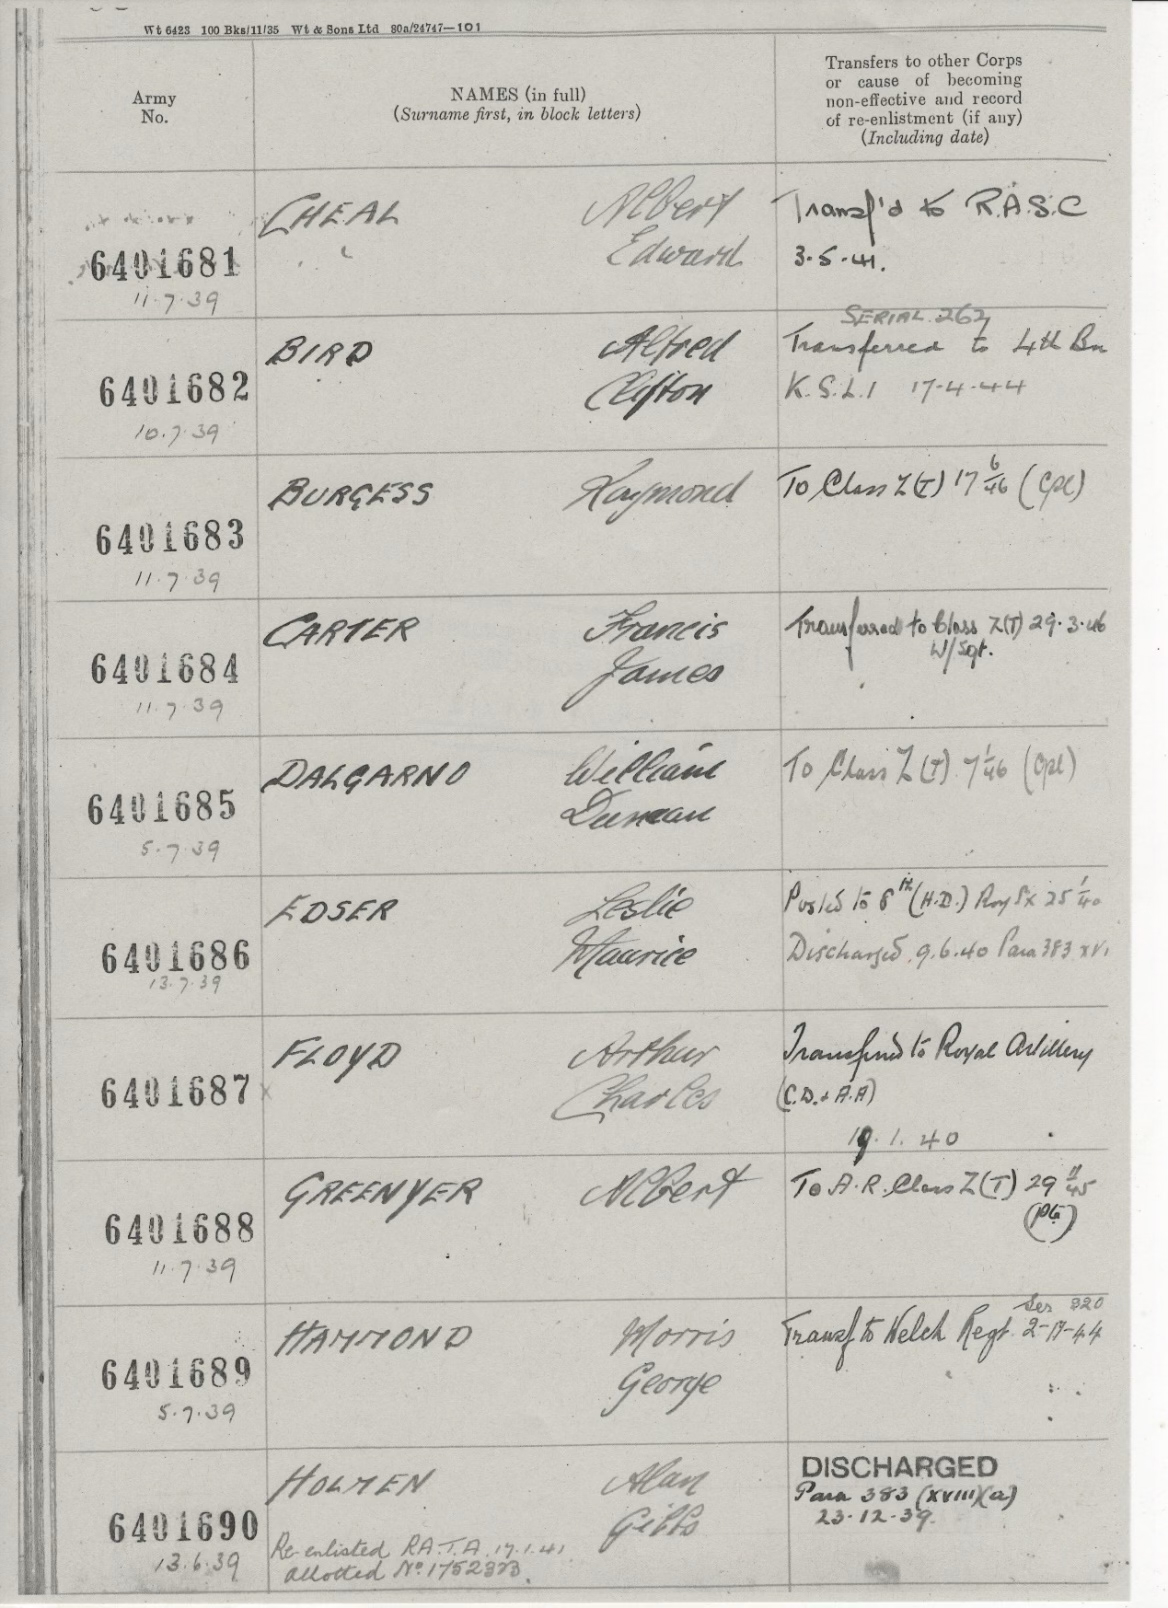 Wt 6423 100 Bks/11/35 Wt & Sons Ltd 80a/24747—101
Army
No.
NAMES (in full)
(Surname first, in block letters)
Transfers to other Corps
or cause of becoming
non-effective and record
of re-enlistment (if any)
(Including date)
6401681
11.7.39
CHEAL
Albert
Edward
Transf'd to R.A.S.C
3.5.41.
6401682
10.7.39
BIRD
Alfred
Clifton
SERIAL 262
Transferred to 4th Bn
K.S.L.I 17-4-44
6401683
11.7.39
BURGESS
Raymond
To Class Z(T) 17 6/46 (Cpl)
6401684
11.7.39
CARTER
Francis
James
Transferred to Class Z(T) 29.3.46
W/Sgt.
6401685
5.7.39
DALGARNO
William
Duncan
To Class Z(T) 7 1/46 (Cpl)
6401686
13.7.39
EDSER
Leslie
Maurice
Posted to 8th (H.D.) Roy Sx 25 1/40
Discharged 9.6.40 Para 383 xvi
6401687
FLOYD
Arthur
Charles
Transferred to Royal Artillery
(C.D. & A.A)
19.1.40
6401688
11.7.39
GREENYER
Albert
To A.R. Class Z(T) 29 11/45
(Pte)
6401689
5.7.39
HAMMOND
Morris
George
Ser 320
Transf to Welch Regt.
6401690
13.6.39
HOLMEN
Alan
Gibbs
Re-enlisted R.A.T.A. 17.1.41
allotted No
DISCHARGED
Para 383 (XVIII)(a)
23.12.39.